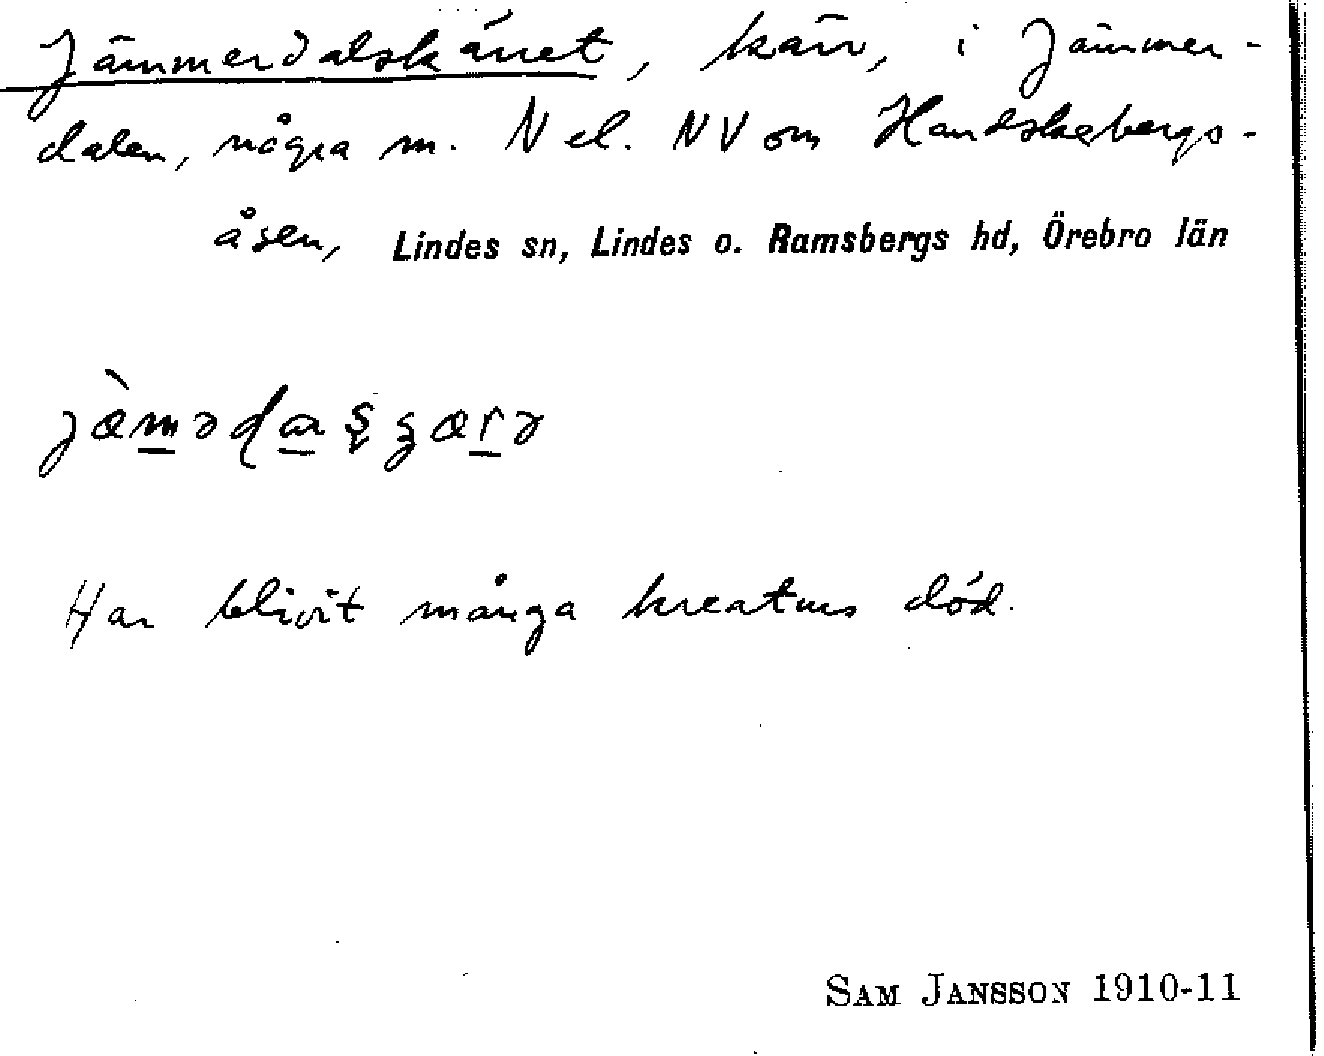 Jämmerdalskärret, kärr, i Jämmer-
dalen, några m. N el. NV om Handskebergs-
åsen, Lindes sn, Lindes o. Ramsbergs hd, Örebro län
Har blivit många kreatur död.
SAM JANSSON 1910-11